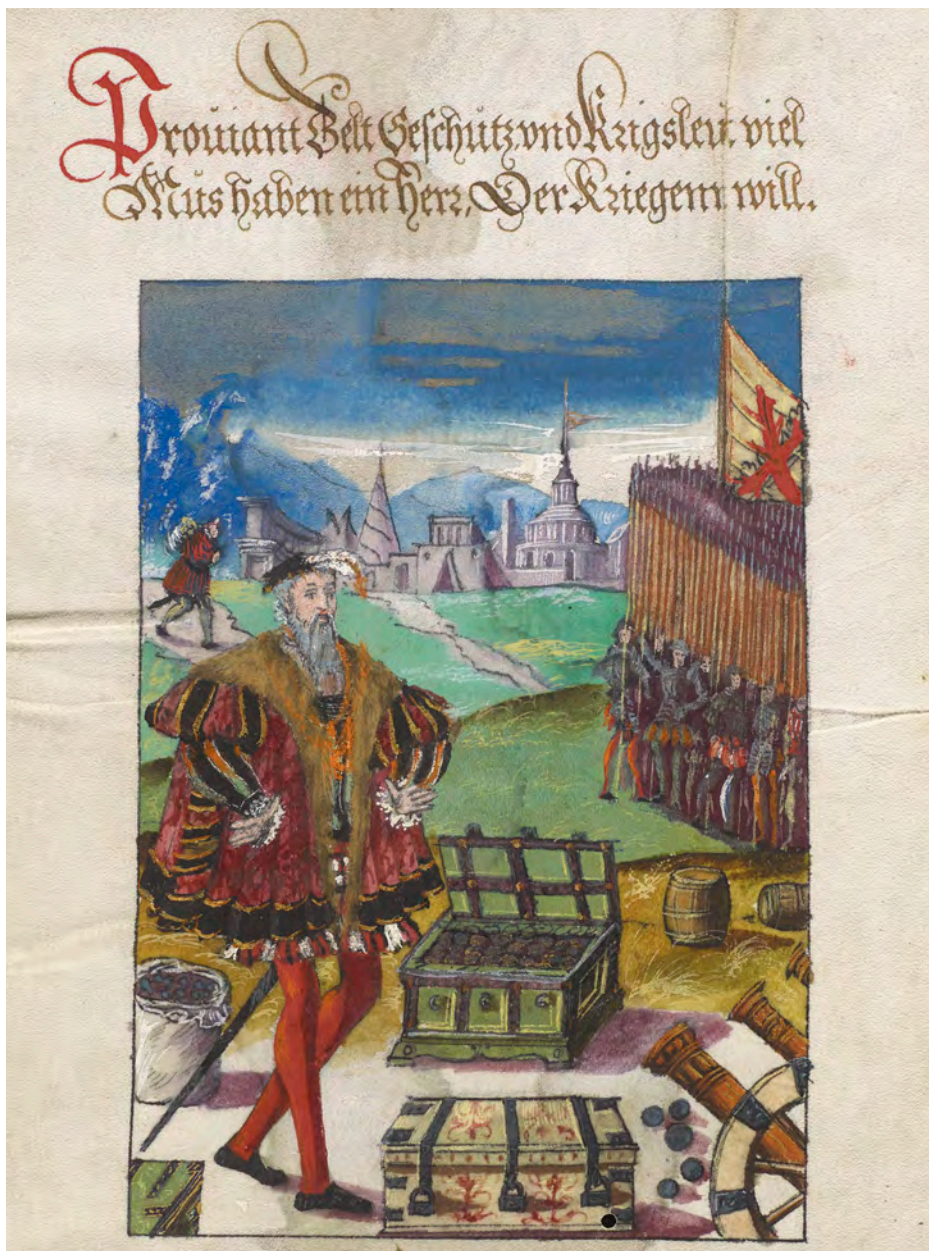 Prouiant Gelt Geschütz vnd Krigsleüt viel
Mus haben ein Herr, Der Kriegenn will.